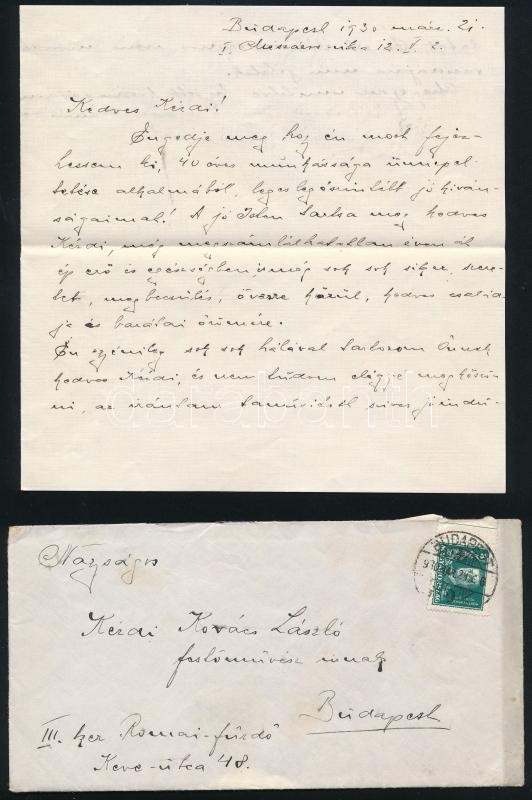 Budapest 1930 márc. 21.
I. Mészáros-utca 12. I. 2.
Kedves Kézdi!
Engedje meg hogy én most fejez-
hessem ki, 40 éves munkássága ünnepel-
tetése alkalmából, legeslegőszintébb jó kíván-
ságaimat! A jó Isten tartsa meg kedves
Kézdi, még megszámlálhatatlan éven át
ép erő és egészségben és még sok sok siker, szere-
tet, megbecsülés, övezze körül, kedves család-
ja és barátai örömére.
Én ezénileg sok sok hálával tartozom Önnek
kedves Kézdi, és nem tudom eléggé megköszön-
ni, az irántam tanúsított szives jóindu-
darabanth
Nagyságos
Kézdi Kovács László
festőművész úrnak
Budapest
III. ker Romai-fürdő
Keve-utca 48.
BUDAPEST